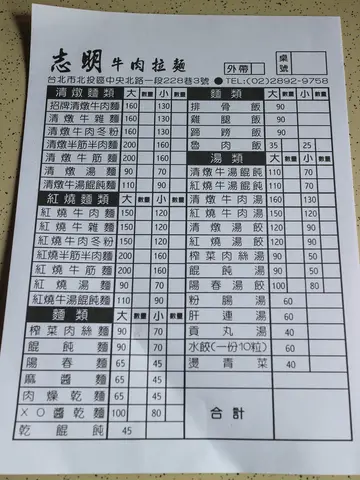 志明 牛肉拉麵 外帶 桌號
台北市北投區中央北路一段228巷3號 ●TEL:(02)2892-9758
清燉麵類 大 數量 小 數量
招牌清燉牛肉麵 160 130
清燉牛雜麵 160 130
清燉牛肉冬粉 160 130
清燉半筋半肉麵 200 160
清燉牛筋麵 200 160
清燉湯麵 90 70
清燉牛湯餛飩麵 110 90
紅燒麵類 大 數量 小 數量
紅燒牛肉麵 150 120
紅燒牛雜麵 150 120
紅燒牛肉冬粉 150 120
紅燒半筋半肉麵 200 160
紅燒牛筋麵 200 160
紅燒湯麵 90 70
紅燒牛湯餛飩麵 110 90
麵類 大 數量 小 數量
榨菜肉絲麵 90 70
餛飩麵 90 70
陽春麵 65 45
麻醬麵 65 45
肉燥乾麵 65 45
XO醬乾麵 100 80
乾餛飩 45
麵類 大 數量 小 數量
排骨飯 90
雞腿飯 90
蹄膀飯 90
魯肉飯 35 25
湯類 大 數量 小 數量
清燉牛湯餛飩 110 70
紅燒牛湯餛飩 110 70
清燉牛肉湯 160 130
紅燒牛肉湯 150 120
清燉湯餃 90 70
紅燒湯餃 90 70
榨菜肉絲湯 90 50
餛飩湯 90 50
陽春湯餃 100 70
粉腸湯 60
肝連湯 60
貢丸湯 40
水餃(一份10粒) 60
燙青菜 40
合計